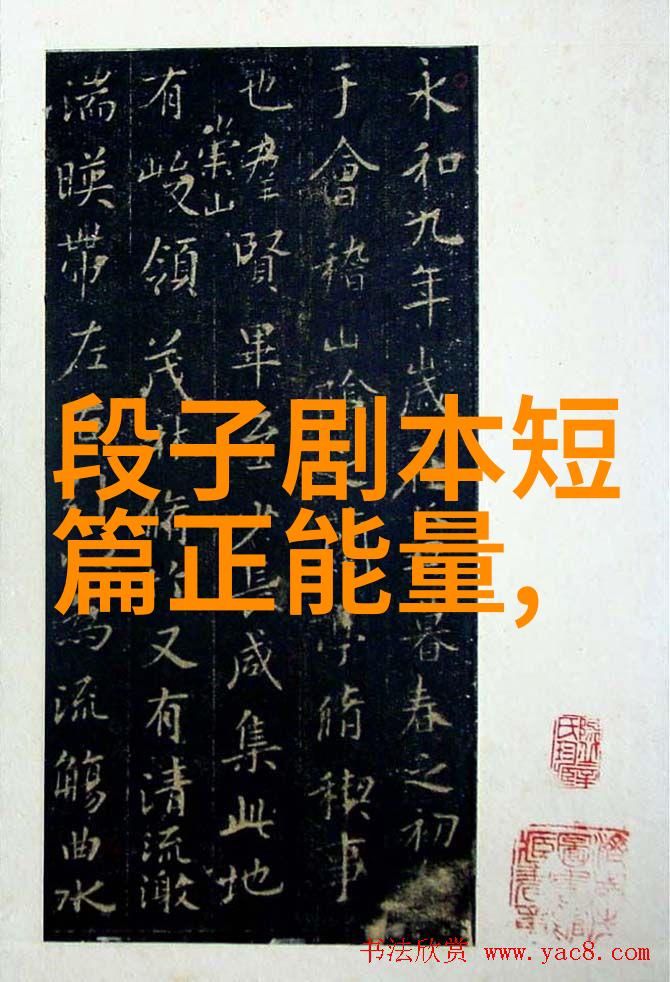 永和九年歲在暮春之初
于會稽山陰亭脩稧事
也羣賢畢至少長咸集此地
有崇山峻領茂林脩又有清流激
湍暎帶左右為流觴曲水
段子剧本短
篇正能量,
书法欣赏 www.yac8.com